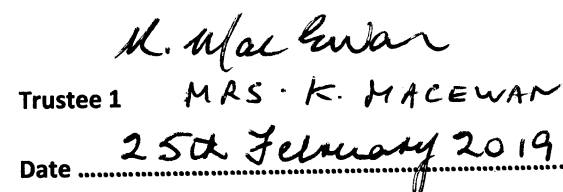 K. MacEwan
Trustee 1 MRS. K. MACEWAN
Date ........ 25th February 2019